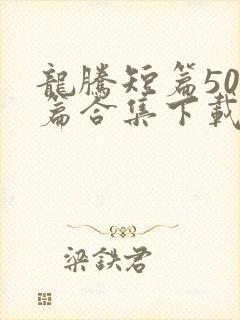 龍騰短篇50
篇合集下載
梁鉄君